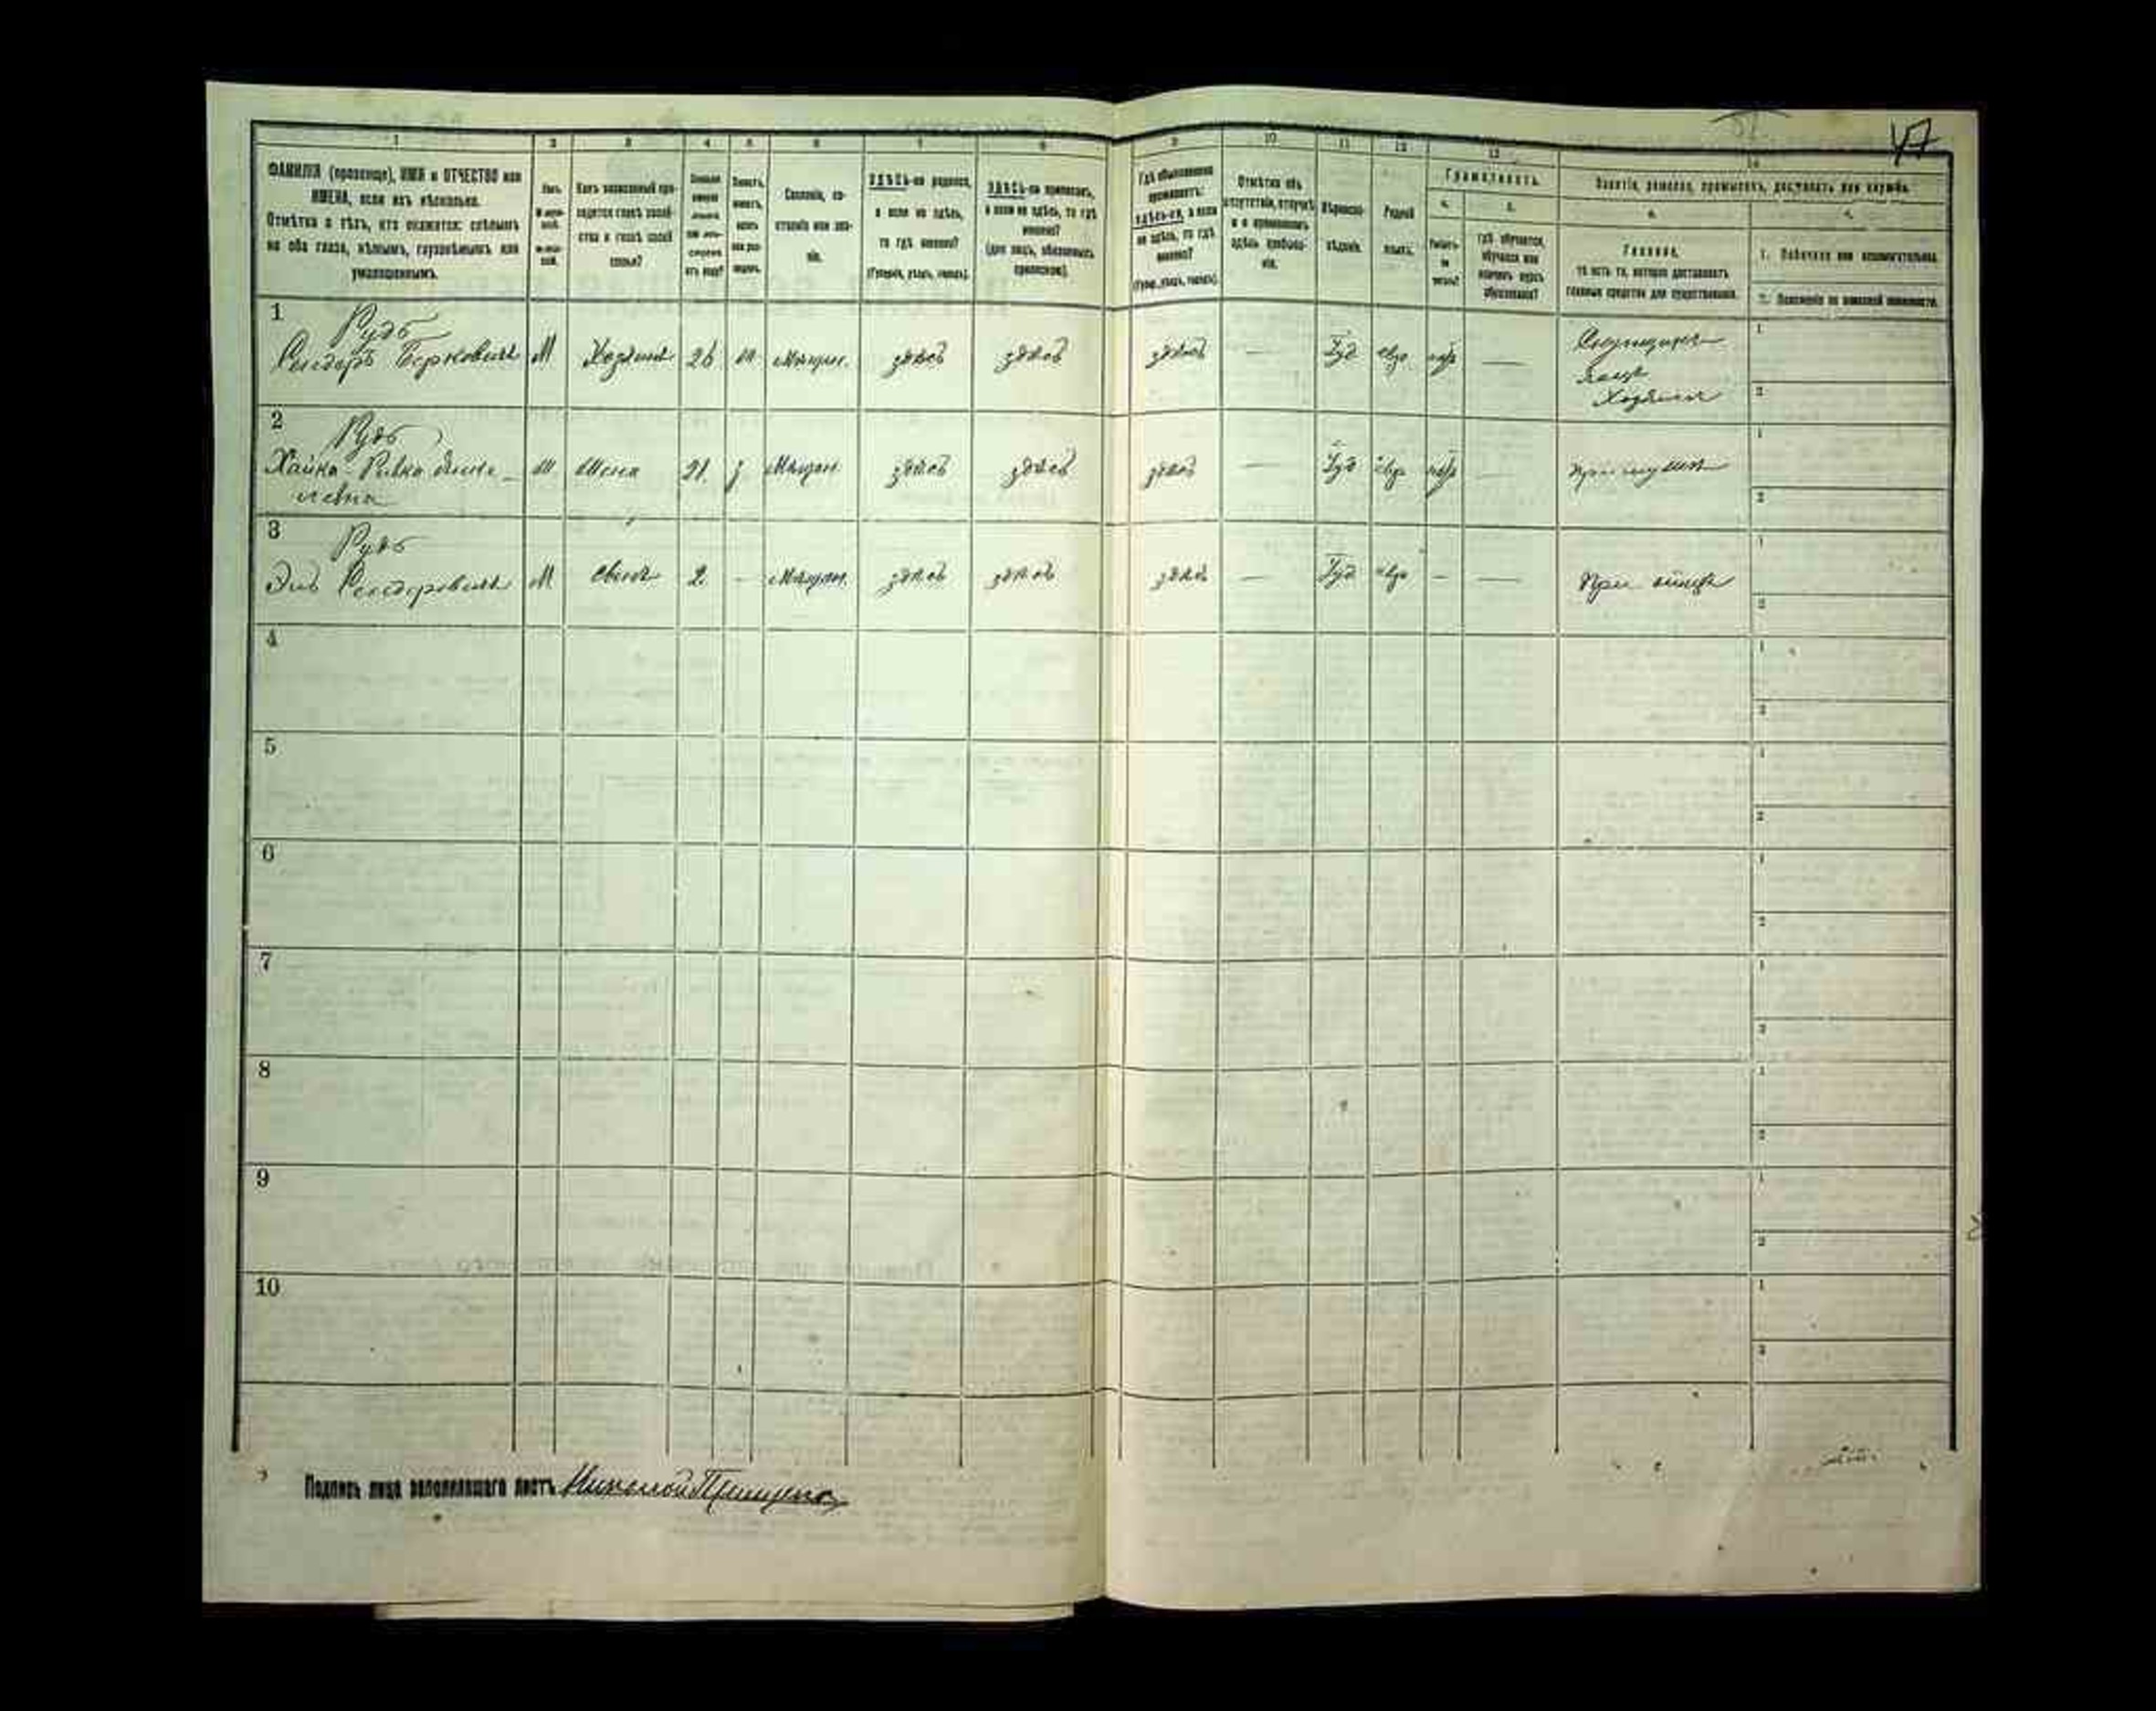 47
1 2 3 4 5 6 7 8 9 10 11 12 13 14
ФАМИЛІЯ (прозвище), ИМЯ и ОТЧЕСТВО или
ИМЕНА, если ихъ нѣсколько.
Отмѣтка о тѣхъ, кто окажется: слѣпымъ
на оба глаза, нѣмымъ, глухонѣмымъ или
умалишеннымъ.
Какъ записанный при-
ходится главѣ хозяй-
ства и главѣ своей
семьи?
Сословіе, со-
стояніе или зва-
ніе.
ЗДѢСЬ-ли родился,
а если не здѣсь,
то гдѣ именно?
(Губернія, уѣздъ, городъ).
ЗДѢСЬ-ли приписанъ,
а если не здѣсь, то гдѣ
именно?
(для лицъ, обязанныхъ
припискою).
Гдѣ обыкновенно
проживаетъ:
здѣсь-ли, а если
не здѣсь, то гдѣ
именно?
(Губер., уѣздъ, городъ).
Отмѣтка объ
отсутствіи, отлучкѣ
и о временномъ
здѣсь пребыва-
ніи.
Вѣроиспо-
вѣданіе.
Родной
языкъ.
Грамотность.
а.
Умѣетъ-
ли
читать?
б.
гдѣ обучается,
обучался или
кончилъ курсъ
образованія?
Занятіе, ремесло, промыселъ, должность или служба.
а.
Главное,
то есть то, которое доставляетъ
главныя средства для существованія.
б.
1. Побочное или вспомогательное.
2. Положеніе по воинской повинности.
1 Рудь
Сендоръ Берковичъ М Хозяинъ 26 ж Мѣщан. здѣсь здѣсь здѣсь — Іуд евр — Хозяинъ 1 2
2 Рудь
Хайка-Ривка Жена 21 Мѣщан. здѣсь здѣсь здѣсь — Іуд евр — при мужѣ 1 2
3 Рудь
Сендоровичъ М Сынъ 2 - Мѣщан. здѣсь здѣсь здѣсь — Іуд евр - — При отцѣ 1 2
4 1 2
5 1 2
6 1 2
7 1 2
8 1 2
9 1 2
10 1 2
Подпись лица заполнявшаго листъ Николай